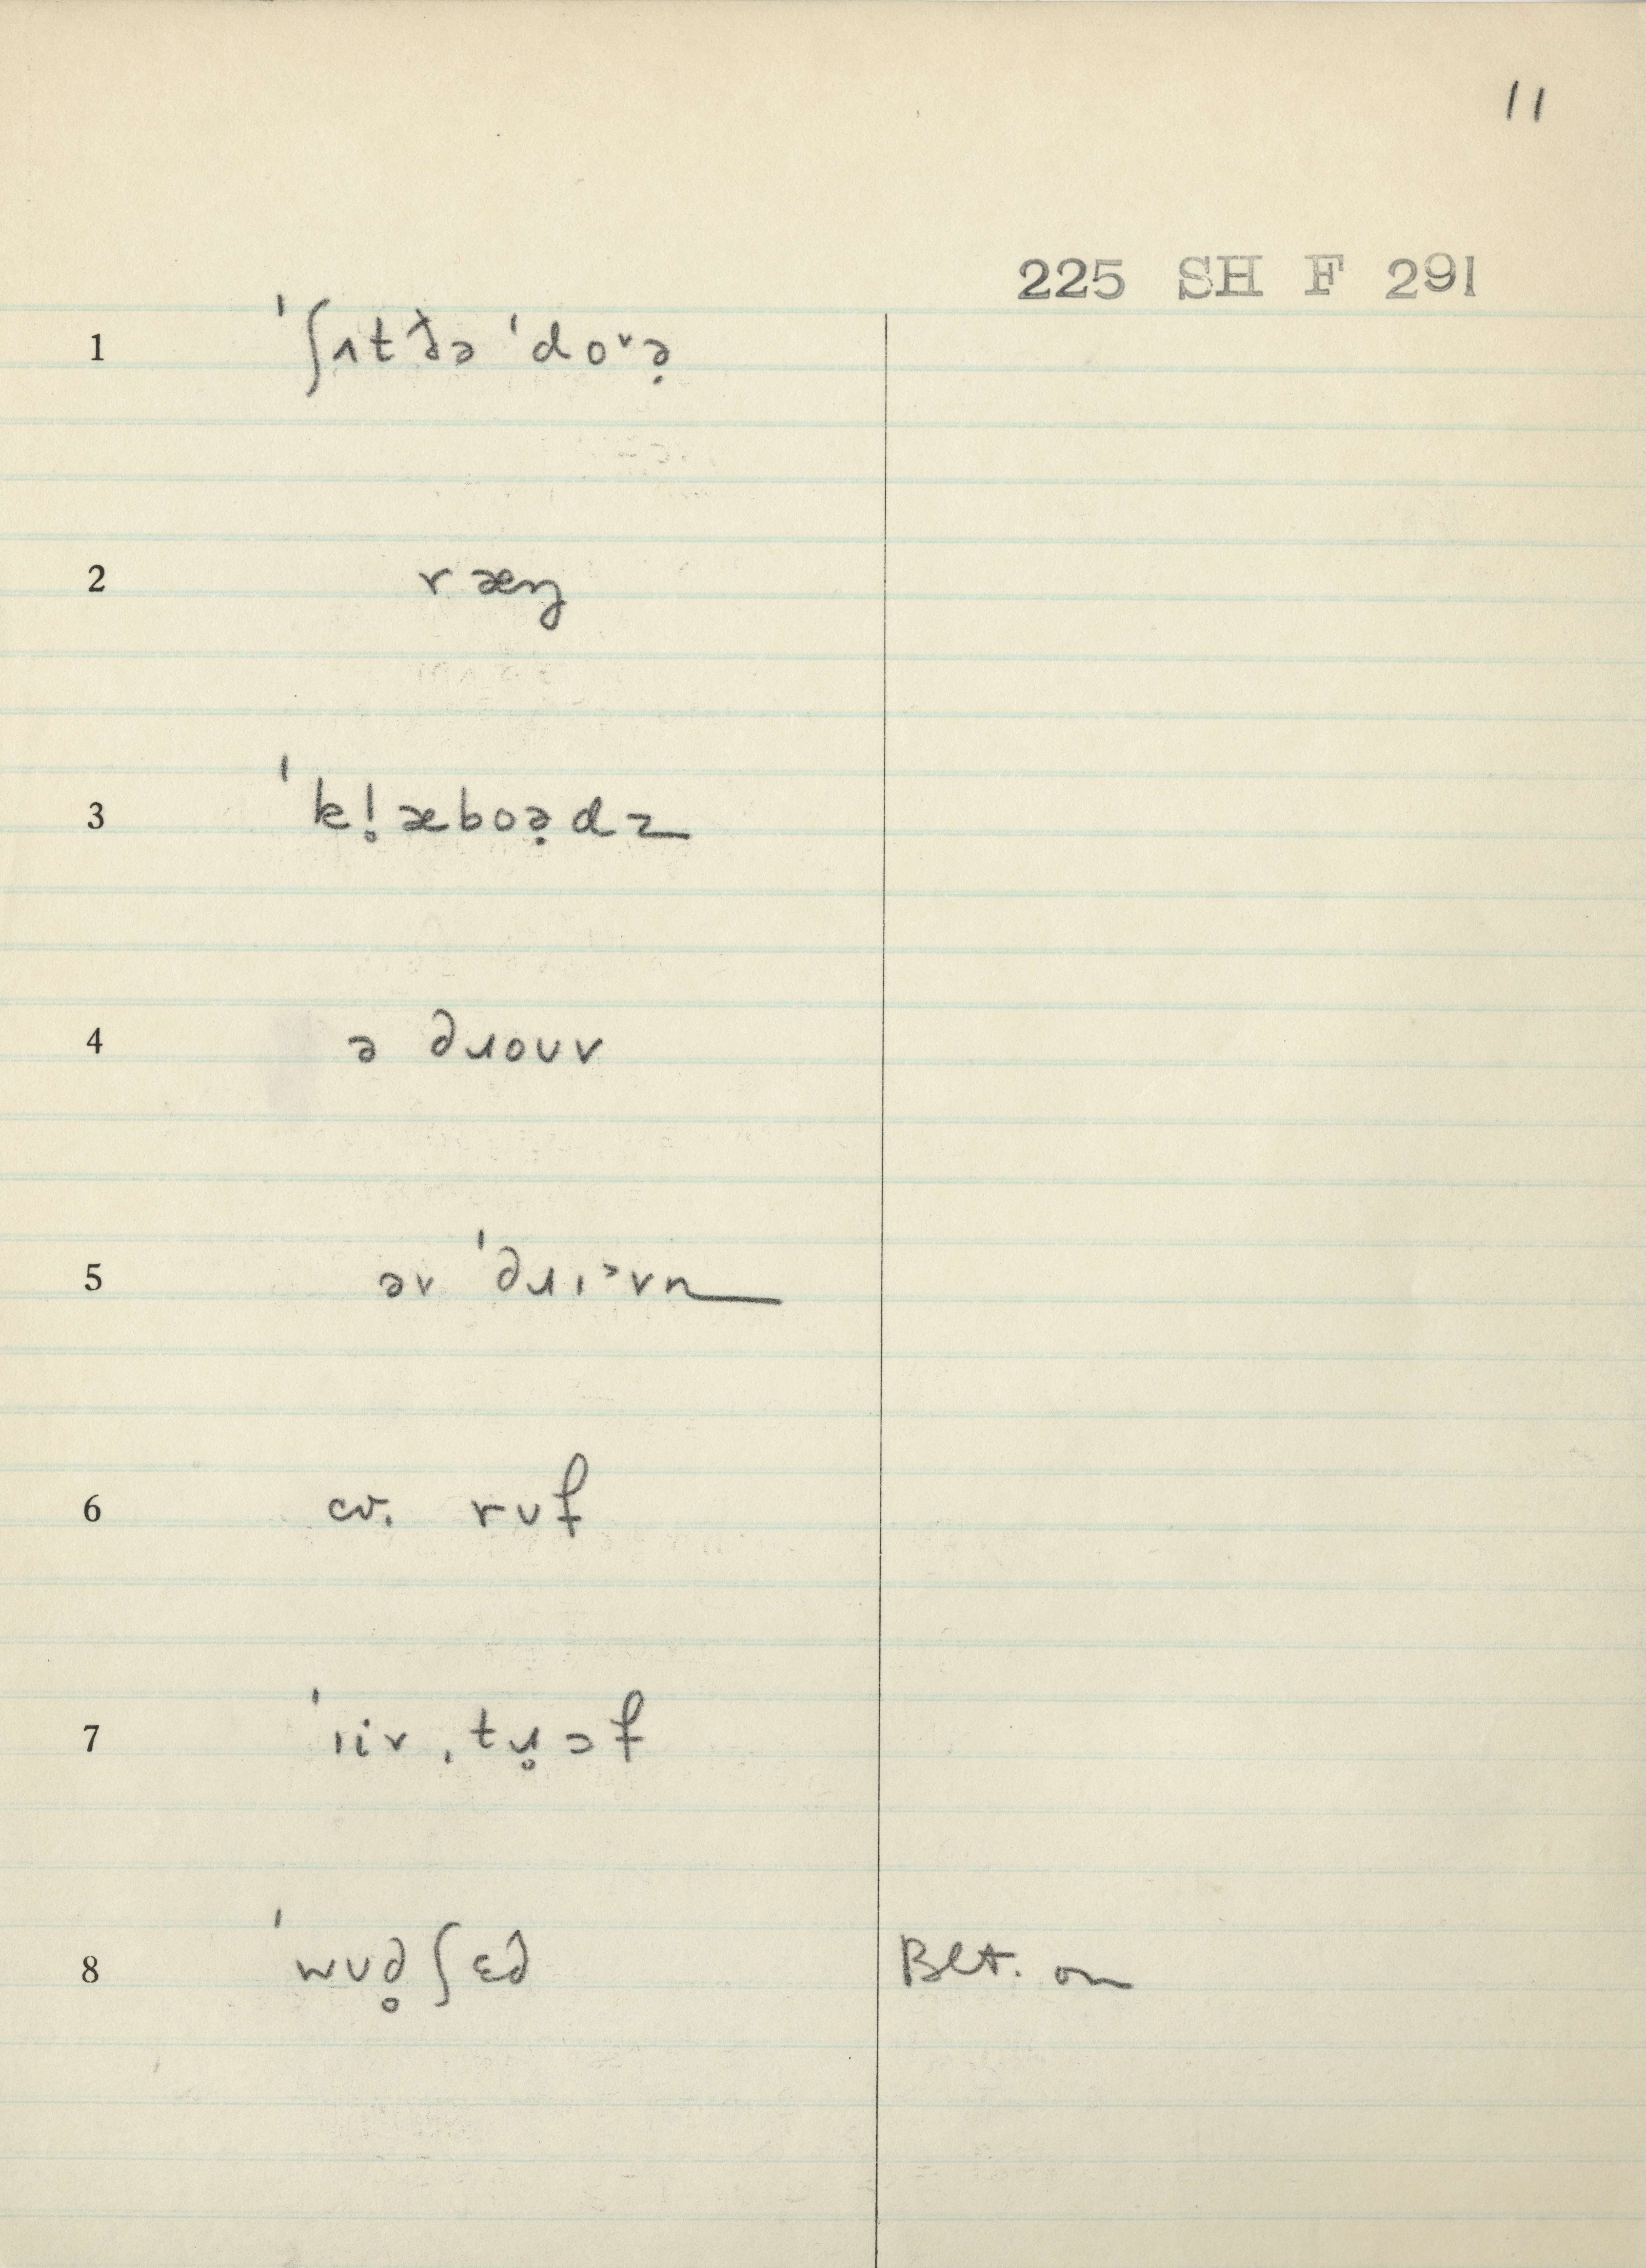 11
225 SH F 291
1 ˈʃʌt ðə ˈdo˅ə̣
2 ræŋ
3 ˈkl̥æboə̣dz
4 ə dɹoʊv
5 əv ˈdɹɪ˃vn
6 rʊf
7 ˈɪiv ˌtɹ̥ɔf
8 ˈwʊd̥ʃɛd Blt. on